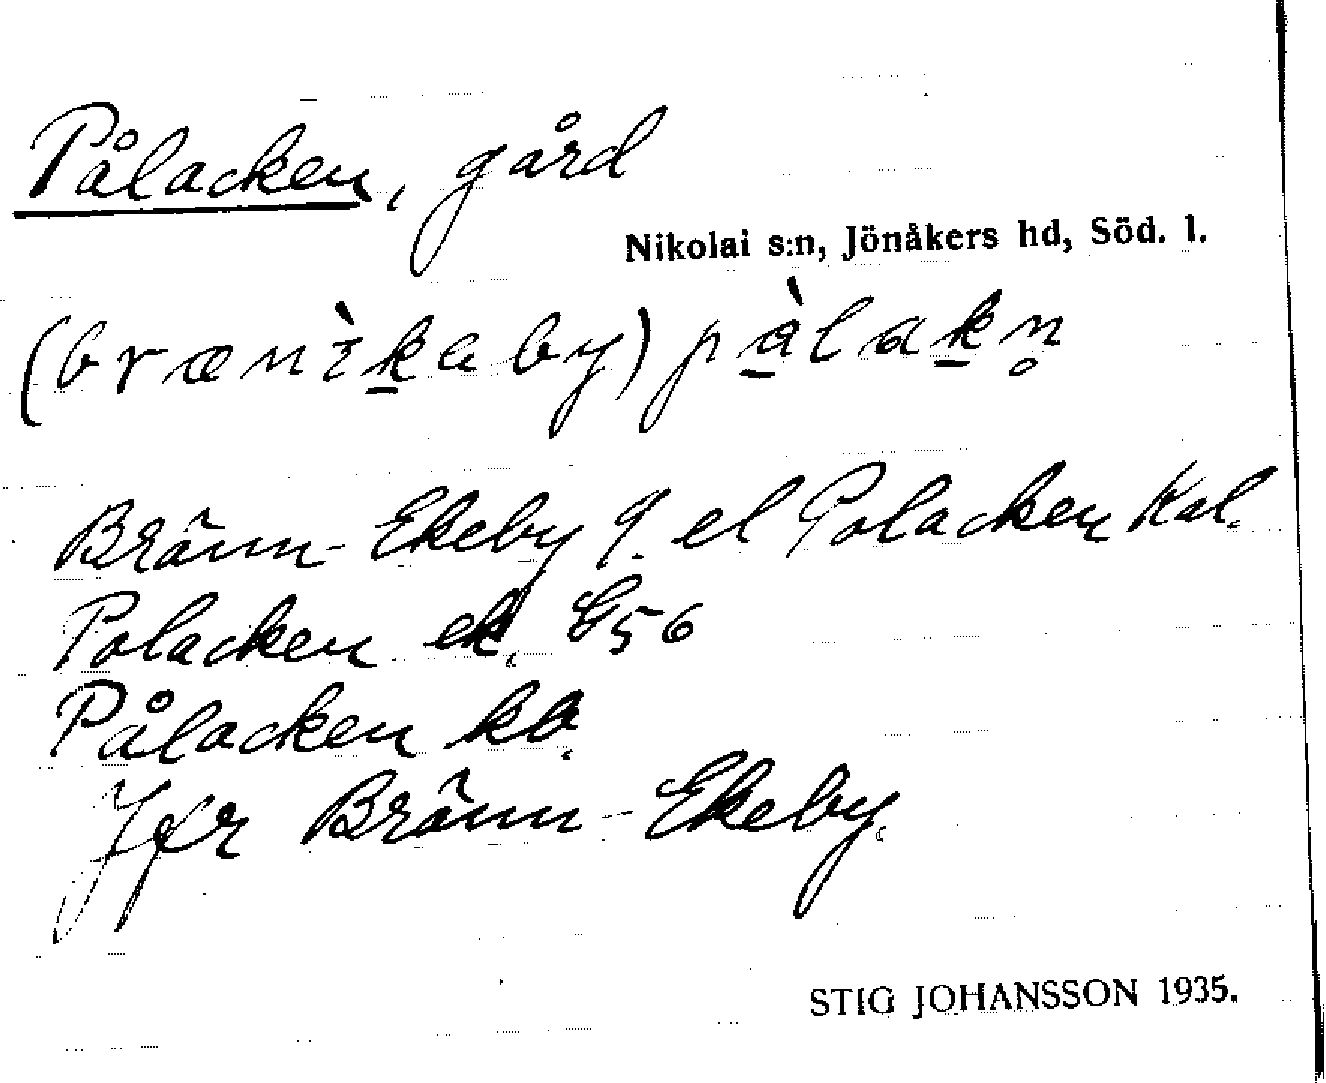 Pålacken, gård
Nikolai s:n, Jönåkers hd, Söd. l.
(brænìkaby) pàlakn̥
Bränn-Ekeby g. el Polacken Kal.
Polacken ek. G56
Pålacken kb.
Jfr Bränn-Ekeby.
STIG JOHANSSON 1935.